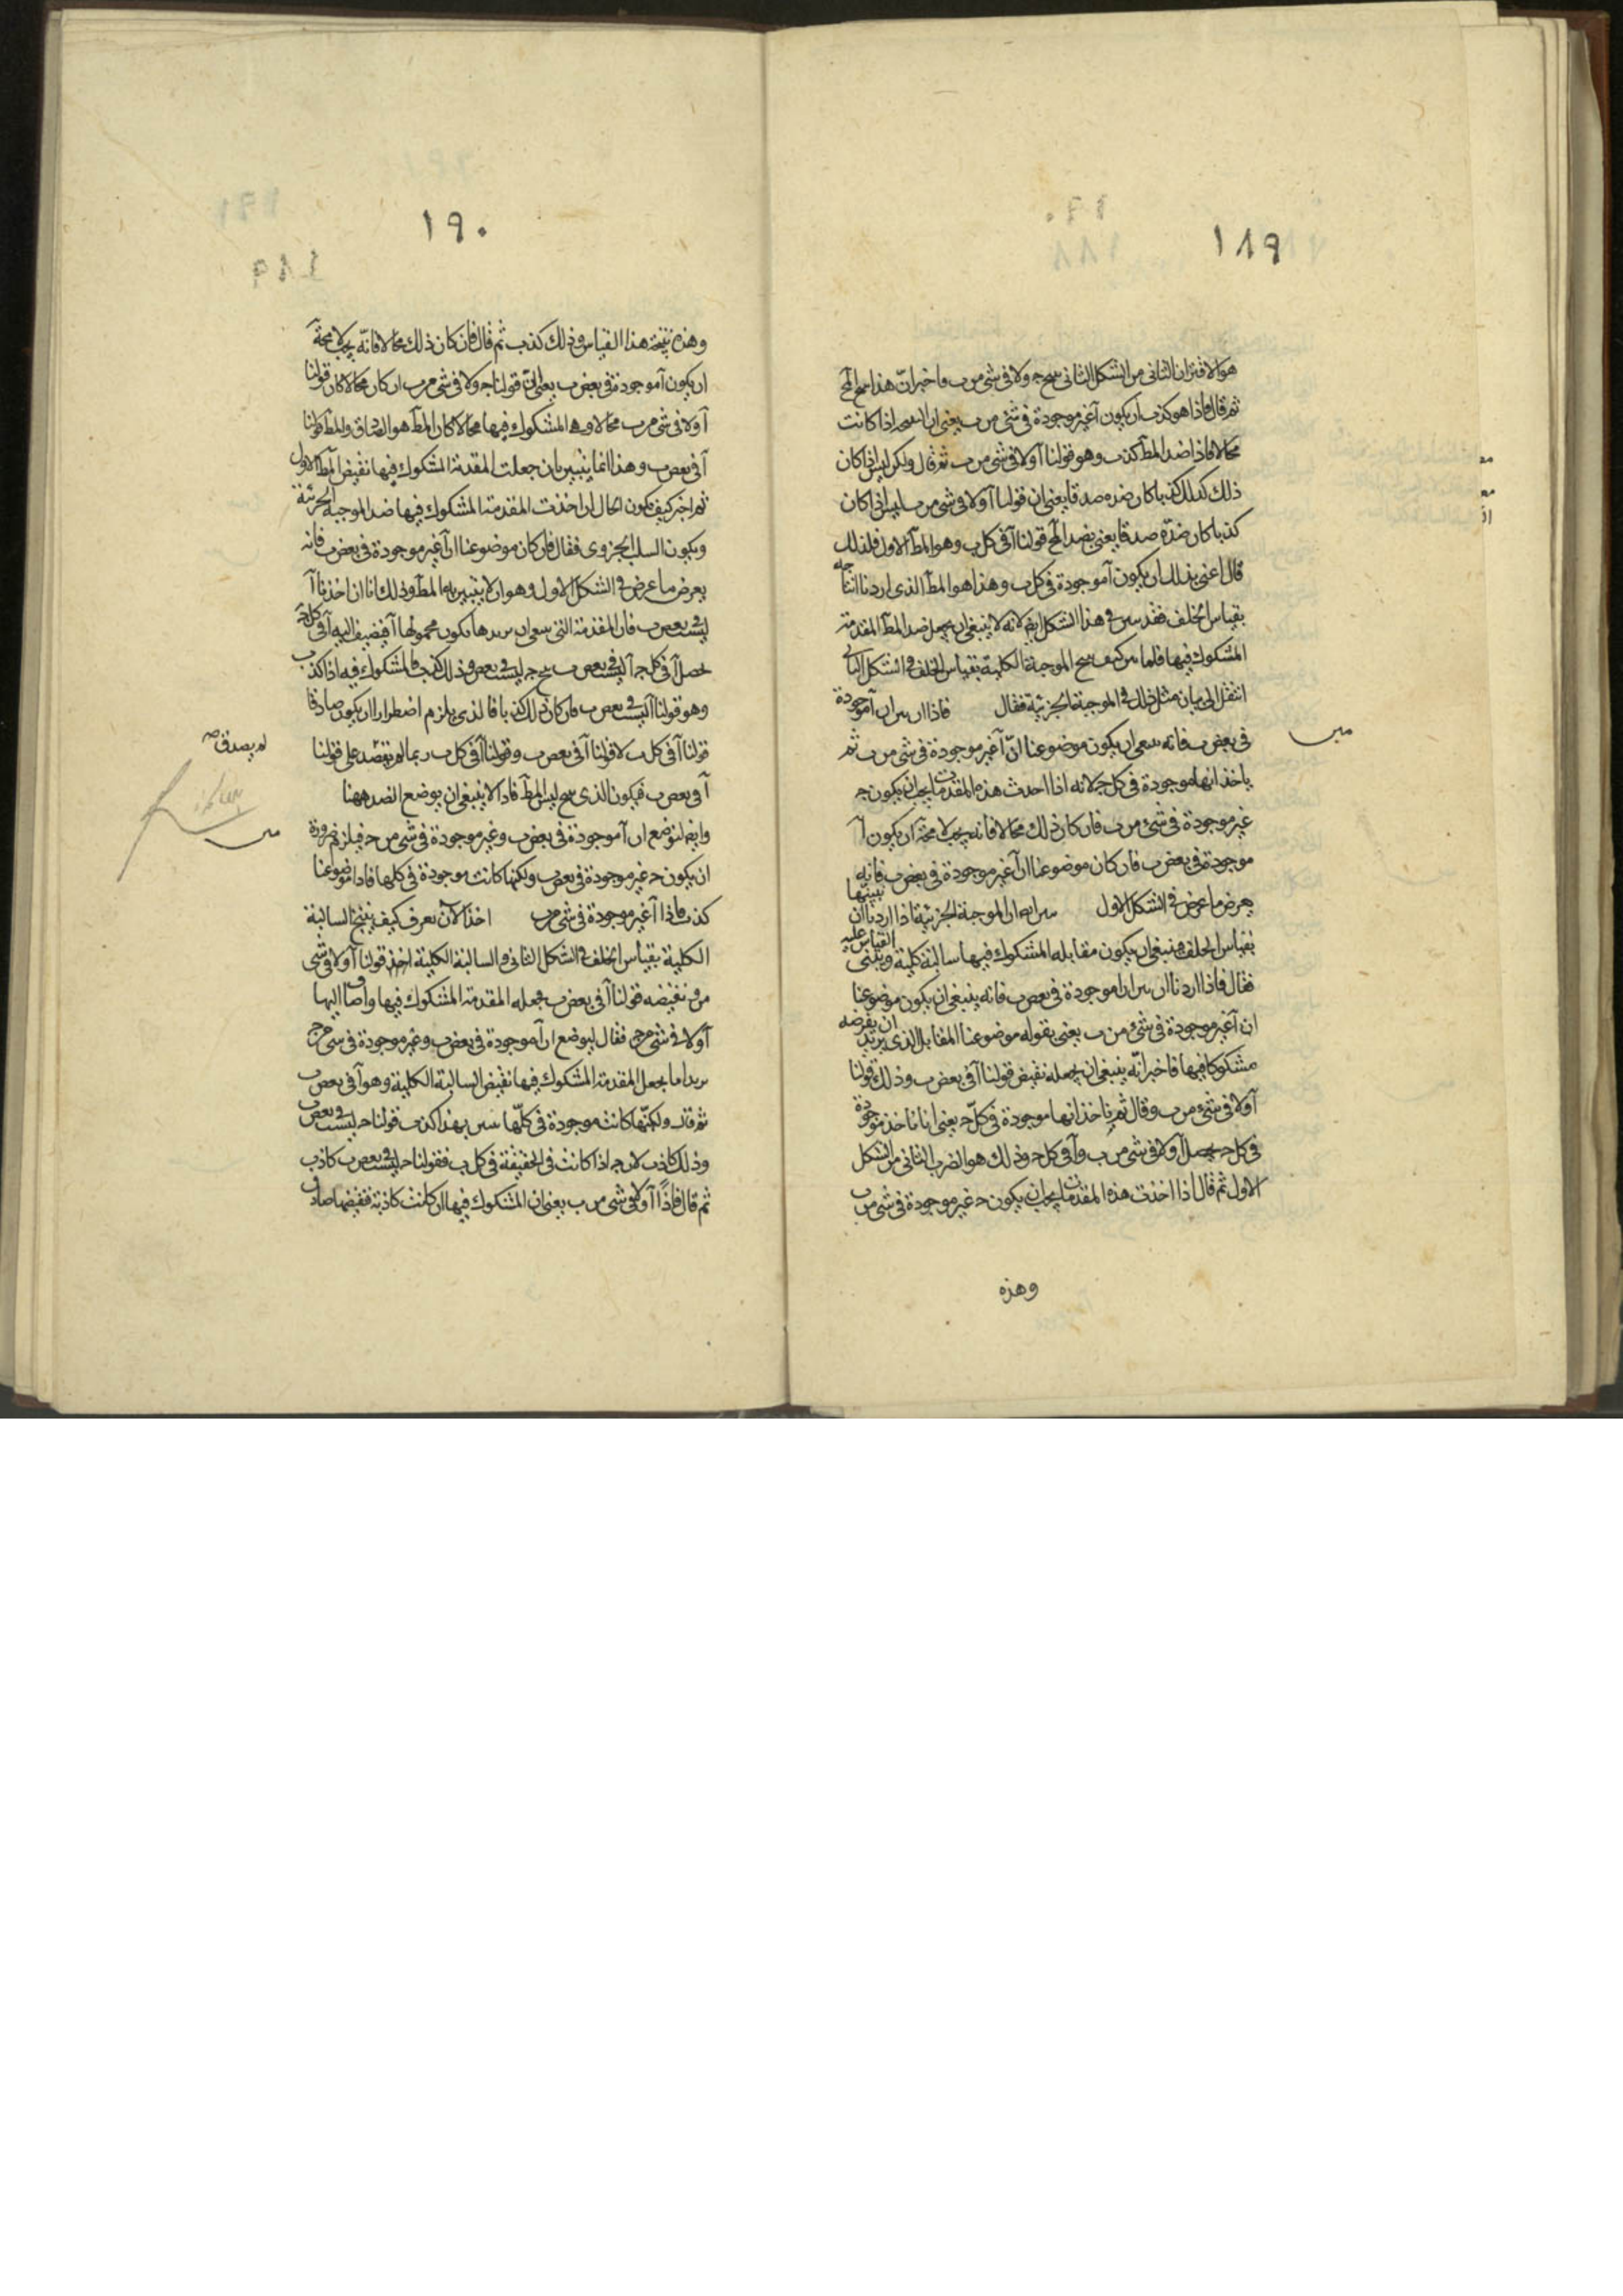 ١٨٩
هو الاقتران الثانى من الشكل الثانى ينتج جـ ولا فى شى من ب واخبر ان هذا ينتج المح
ثم قال فاذا هو كذب ان يكون آ غير موجودة فى شئ من ب يعنى ان اذا كانت
محالا فاذا ضد المط كذب وهو قولنا آ ولا فى شئ من ب ثم قال ولكن ليس اذا كان
ذلك كذلك كذبا كان ضده صدقا يعنى ان قولنا آ ولا فى شى من ب ليس اذا كان
كذبا كان ضده صدقا يعنى بضد المح قولنا آ فى كل ب وهو المط الاول فلذلك
قال اعنى بذلك ان يكون آ موجودة فى كل ب وهذا هو المط الذى اردنا انتاجه
بقياس الخلف فقد تبين فى هذا الشكل ايض لانه لا ينبغى ان يجعل ضد المط المقدمة
المشكوك فيها فلما بين كيف ينتج الموجبة الكلية بقياس الخلف فى الشكل الثانى
انتقل الى بيان مثل ذلك فى الموجبة الجزئية فقال فاذا اردنا ان نبين ان آ موجودة
فى بعض ب فانه ينبغى ان يكون موضوعنا انّ آ غير موجودة فى شى من ب ثم
مبين
ياخذ انها موجودة فى كل جـ لانه اذا اخذت هذه المقدمات يجب ان يكون جـ
غير موجودة فى شئ من ب فان كان ذلك محالا فانه يجب لا محة ان يكون آ
موجودة فى بعض ب فان كان موضوعنا ان آ غير موجودة فى بعض ب فانه
يعرض ما عرض فى الشكل الاول يبين انه ان الموجبة الجزئية اذا اردنا ان نبينها
بقياس الخلف فينبغى ان يكون مقابله المشكوك فيها سالبة كلية ويبتنى القياس عليه
فقال فاذا اردنا ان نبين ان آ موجودة فى بعض ب فانه ينبغى ان يكون موضوعنا
ان آ غير موجودة فى شئ من ب يعنى بقوله موضوعنا المقابل الذى يريد ان يفرضه
مشكوكا فيها فاخبر انّه ينبغى ان يجعله نقيض قولنا آ فى بعض ب وذلك قولنا
آ ولا فى شئ من ب وقال ثم ياخذ انها موجودة فى كلّ جـ يعنى انا ناخذ آ موجودة
فى كل جـ يحصل آ ولا فى شى من ب وآ فى كل جـ وذلك هو الضرب الثانى من الشكل
الاول ثم قال اذا اخذت هذه المقدمات يجب ان يكون جـ غير موجودة فى شى من ب
وهذه
١٩٠
وهذه نتيجة هذا القياس وذلك كذب ثم قال فان كان ذلك محالا فانّه يجب لا محة
ان يكون آ موجودة فى بعض ب يعنى انّ قولنا جـ ولا فى شى من ب ان كان محالا كان قولنا
آ ولا فى شى من ب محالا وهو المشكوك فيها محالا كان المط هو الصادق والمط قولنا
آ فى بعض ب وهذا انما يتبين بان جعلت المقدمة المشكوك فيها نقيض المط الاول
ثم اخبر كيف يكون الحال ان اخذت المقدمة المشكوك فيها ضد الموجبة الجزئية
ويكون السلب الجزوى فقال فان كان موضوعنا ان آ غير موجودة فى بعض ب فانه
يعرض ما عرض فى الشكل الاول وهو ان لا يتبين به المط وذلك انا ان اخذنا آ
ليست فى بعض ب فان المقدمة التى ينبغى ان نريدها يكون محمولها آ فيضيف اليه آ فى كل جـ
يحصل آ فى كل جـ آ ليست فى بعض ب ينتج جـ ليست فى بعض ب وذلك كذب فالمشكوك فيه اذا كذب
وهو قولنا آ ليست فى بعض ب فان كان ذلك كذبا فالذى يلزم اضطرارا ان يكون صادقا
قولنا آ فى كل ب لا قولنا آ فى بعض ب وقولنا آ فى كل ب ربما لم يقصد على قولنا
لم يصدق صح
آ فى بعض ب فيكون الذى ينتج ليس المط فاذا لا ينبغى ان يوضع الضد ههنا
وايض لنوضع ان آ موجودة فى بعض ب وغير موجودة فى شى من جـ فيلزم ضرورة
مبين
ان يكون جـ غير موجودة فى بعض ب ولكنها كانت موجودة فى كلها فاذا موضوعنا
كذب فاذا آ غير موجودة فى شى من ب اخذ الآن يعرف كيف ينتج السالبة
الكلية بقياس الخلف فى الشكل الثانى والسالبة الكلية اخذ قولنا آ ولا فى شى
من ب ونقيضه قولنا آ فى بعض ب فجعله المقدمة المشكوك فيها واضاف اليها
آ ولا فى شى من جـ فقال ليوضع ان آ موجودة فى بعض ب وغير موجودة فى شى من جـ
يريد انا نجعل المقدمة المشكوك فيها نقيض السالبة الكلية وهو آ فى بعض ب
ثم قال ولكنّها كانت موجودة فى كلّها يبين بهذا كذب قولنا جـ ليست فى بعض ب
وذلك كاذب لان جـ اذا كانت فى الحقيقة فى كل ب فقولنا جـ ليست فى بعض ب كاذب
ثم قال فاذًا آ ولا فى شى من ب يعنى ان المشكوك فيها ان كانت كاذبة فنقيضها صادق